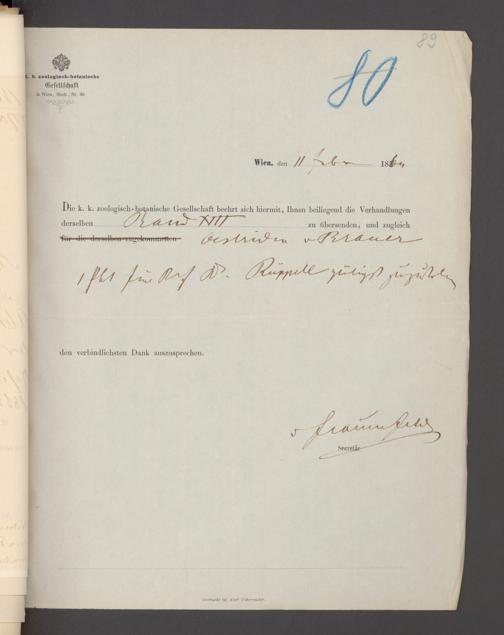 89
80
k. k. zoologisch-botanische
Gesellschaft
in Wien, Stadt, Nr.
Wien, den 11 Febr 1864
Die k. k. zoologisch-botanische Gesellschaft beehrt sich hiermit, Ihnen beiliegend die Verhandlungen
derselben Band XIII zu übersenden, und zugleich
für die derselben zugekommenen Oestriden v Brauer
1 Pkt für Prof Dr. Rüppell gütigst
den verbindlichsten Dank auszusprechen.
v Frauenfeld
Secretär.